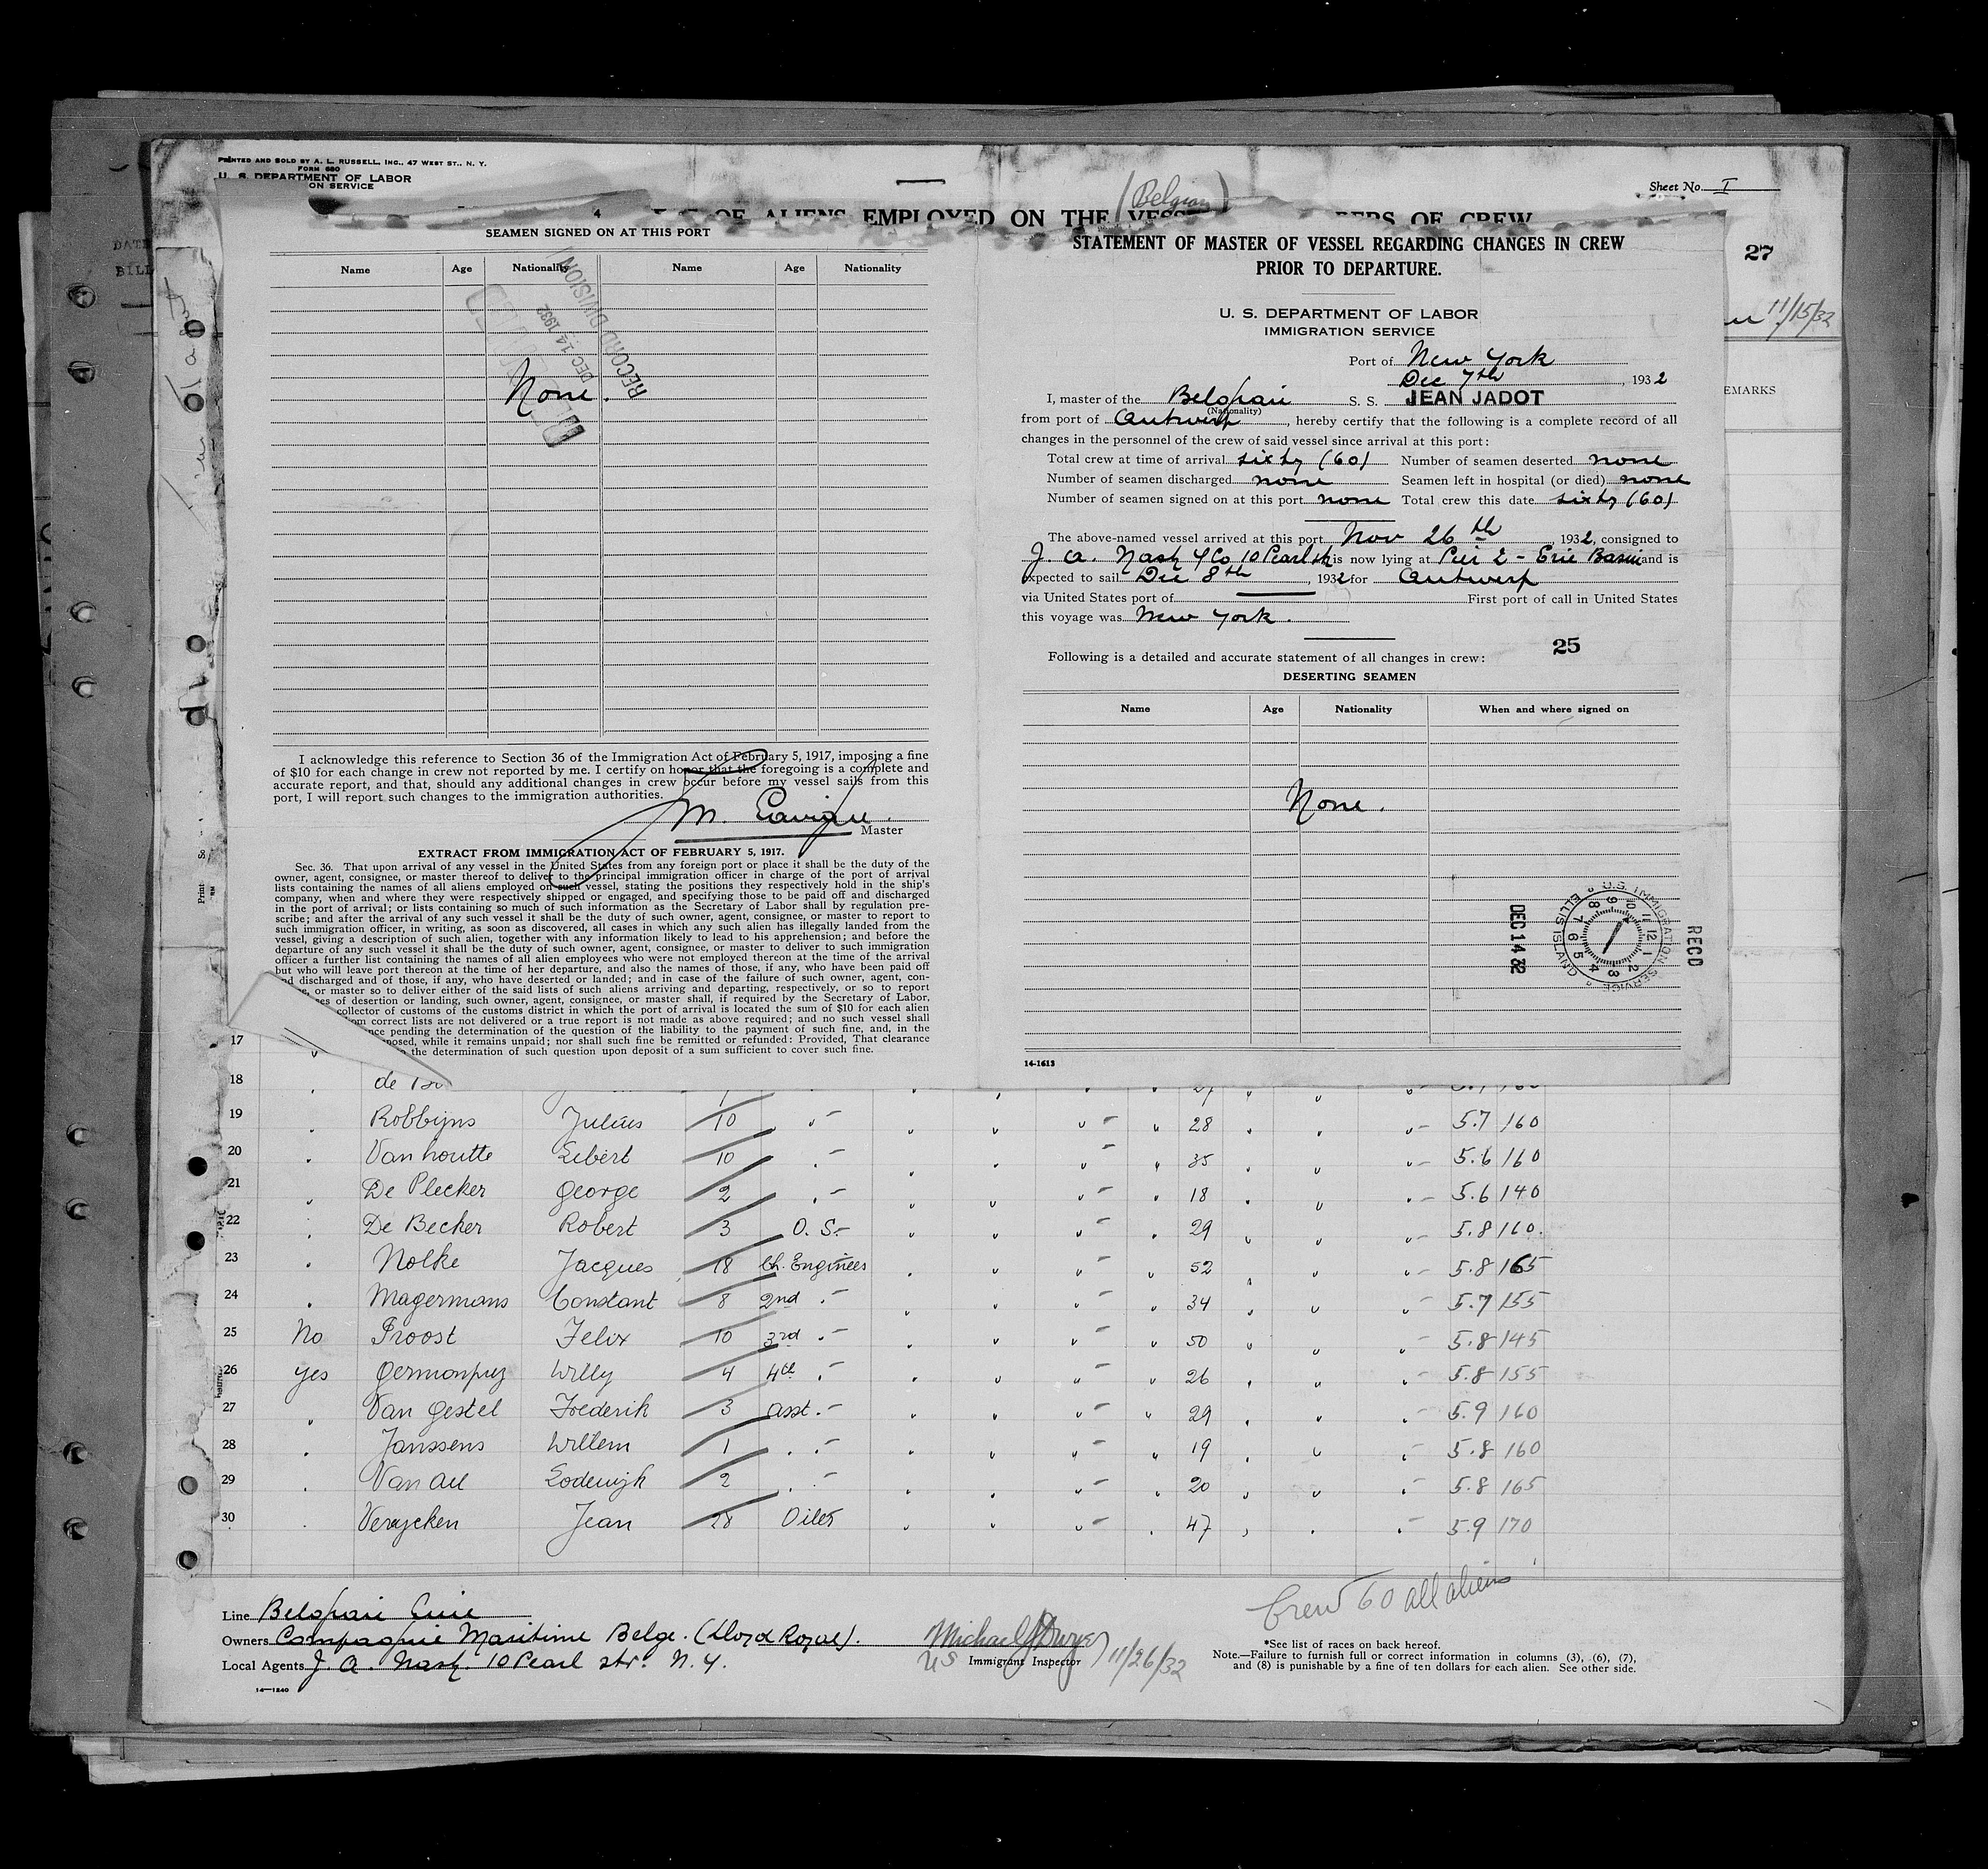 PRINTED AND SOLD BY A. L. RUSSELL, INC., 47 WEST ST., N. Y.
FORM 680
U. S. DEPARTMENT OF LABOR
ON SERVICE
Sheet No. I
(Belgian)
OF ALIENS EMPLOYED ON THE VESS BERS OF CREW
4
SEAMEN SIGNED ON AT THIS PORT
Name Age Nationality Name Age Nationality
RECORD DIVISION
DEC 14 1932
None.
I acknowledge this reference to Section 36 of the Immigration Act of February 5, 1917, imposing a fine
of $10 for each change in crew not reported by me. I certify on honor that the foregoing is a complete and
accurate report, and that, should any additional changes in crew occur before my vessel sails from this
port, I will report such changes to the immigration authorities.
M.
Master
EXTRACT FROM IMMIGRATION ACT OF FEBRUARY 5, 1917.
Sec. 36. That upon arrival of any vessel in the United States from any foreign port or place it shall be the duty of the
owner, agent, consignee, or master thereof to deliver to the principal immigration officer in charge of the port of arrival
lists containing the names of all aliens employed on such vessel, stating the positions they respectively hold in the ship's
company, when and where they were respectively shipped or engaged, and specifying those to be paid off and discharged
in the port of arrival; or lists containing so much of such information as the Secretary of Labor shall by regulation pre-
scribe; and after the arrival of any such vessel it shall be the duty of such owner, agent, consignee, or master to report to
such immigration officer, in writing, as soon as discovered, all cases in which any such alien has illegally landed from the
vessel, giving a description of such alien, together with any information likely to lead to his apprehension; and before the
departure of any such vessel it shall be the duty of such owner, agent, consignee, or master to deliver to such immigration
officer a further list containing the names of all alien employees who were not employed thereon at the time of the arrival
but who will leave port thereon at the time of her departure, and also the names of those, if any, who have been paid off
nd discharged and of those, if any, who have deserted or landed; and in case of the failure of such owner, agent, con-
e, or master so to deliver either of the said lists of such aliens arriving and departing, respectively, or so to report
es of desertion or landing, such owner, agent, consignee, or master shall, if required by the Secretary of Labor,
collector of customs of the customs district in which the port of arrival is located the sum of $10 for each alien
om correct lists are not delivered or a true report is not made as above required; and no such vessel shall
nce pending the determination of the question of the liability to the payment of such fine, and, in the
posed, while it remains unpaid; nor shall such fine be remitted or refunded: Provided, That clearance
the determination of such question upon deposit of a sum sufficient to cover such fine.
STATEMENT OF MASTER OF VESSEL REGARDING CHANGES IN CREW
PRIOR TO DEPARTURE.
U. S. DEPARTMENT OF LABOR
IMMIGRATION SERVICE
Port of New York
Dec 7th, 1932
I, master of the Belgian S. S. JEAN JADOT
(Nationality)
from port of Antwerp, hereby certify that the following is a complete record of all
changes in the personnel of the crew of said vessel since arrival at this port:
Total crew at time of arrival sixty (60) Number of seamen deserted none
Number of seamen discharged none Seamen left in hospital (or died) none
Number of seamen signed on at this port none Total crew this date sixty (60)
The above-named vessel arrived at this port Nov 26th, 1932, consigned to
J. A. Nash & Co 10 Pearl str is now lying at Pier 2 - Erie Basin and is
expected to sail Dec 8th, 1932 for Antwerp
via United States port of First port of call in United States
this voyage was New York.
25
Following is a detailed and accurate statement of all changes in crew:
DESERTING SEAMEN
Name Age Nationality When and where signed on
None.
U.S. IMMIGRATION SERVICE ELLIS ISLAND
1 2 3 4 5 6 7 8 9 10 11 12
DEC 14 32
RECD
14-1613
27
11/15/32
EMARKS
17
18 de
19 Robbyns Julius 10 " 28 5.7 160
20 Vanhoutte Libert 10 " 35 5.6 160
21 De Plecker George 2 " 18 5.6 140
22 De Becker Robert 3 O. S. 29 5.8 160.
23 Nolke Jacques 18 Ch. Engineer 52 5.8 165
24 Magermans Constant 8 2nd " 34 5.7 155
25 No Proost Felix 10 3rd " 50 5.8 145
26 yes Germonprez Willy 4 4th " 26 5.8 155
27 Van Gestel Frederik 3 asst. 29 5.9 160
28 Janssens Willem 1 " 19 5.8 160
29 Van Lodewijk 2 " 20 5.8 165
30 Verycken Jean 28 Oiler 47 5.9 170
Crew 60 all aliens
Line Belgian Line
Owners Compagnie Maritime Belge. (Lloyd Royal).
Local Agents J. A. Nash. 10 Pearl str. N. Y.
Michael J Dwyer
US Immigrant Inspector 11/26/32
*See list of races on back hereof.
Note.—Failure to furnish full or correct information in columns (3), (6), (7),
and (8) is punishable by a fine of ten dollars for each alien. See other side.
14—1240